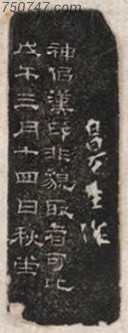 750747.com
神侣汉印非貌取者可比
戊午三月十四日秋堂